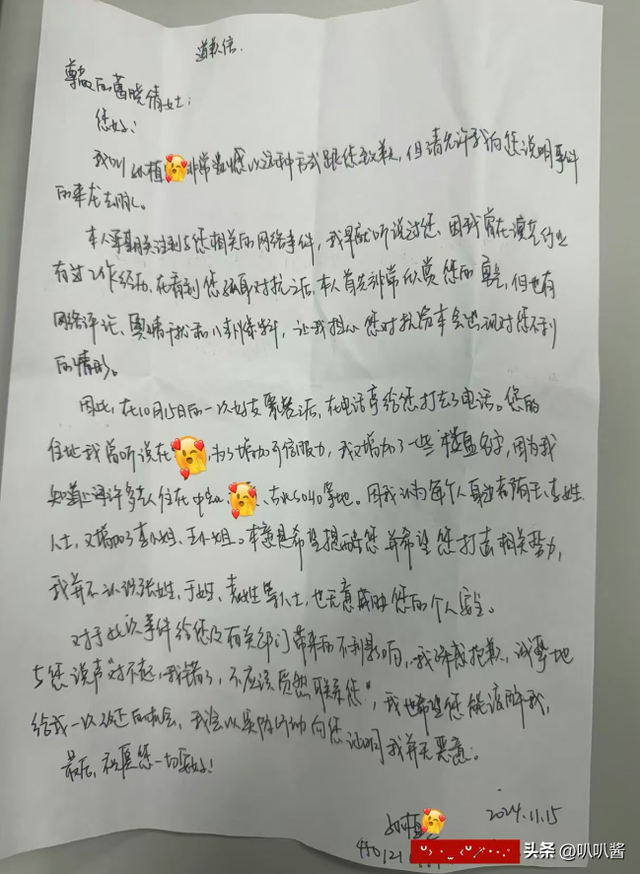 道歉信.
尊敬的葛晓倩女士:
您好!
我叫 植 非常 以这种方式跟您致歉, 但请允许我向您说明事件
的来龙去脉。
本人 关注到与您相关的网络事件, 我早就听说过您. 因我曾在 行业
有过工作经历, 在看到您 对抗之后, 本人首先非常欣赏您的 , 但也有
网络评论、舆情干扰和八卦 , 让我担心您对抗 会出现对您不利
的情形。
因此, 在10月15日的一次好友聚餐之后, 在电话亭给您打去了电话。您的
住址我曾听说在 , 为了增加可信服力, 我又增加了一些 楼盘名字, 因为我
知道上海许多人住在中 、古北5040等地. 因我认为每个人身边都有王、李姓
人士, 又增加了李小姐、王小姐。本意是希望提醒您 并希望您打击相关势力,
我并不认识张姓、于姓、袁姓等人士, 也无意威胁您的个人安全。
对于此次事件给您及有关部门带来的不利影响, 我深感抱歉, 诚挚地
与您说声"对不起, 我错了, 不应该贸然联系您", 我也希望您能谅解我,
给我一次改正的机会, 我会以实际行动向您证明我并无恶意。
最后, 祝愿您一切安好!
植
2024.11.15
430121
头条 @叭叭酱